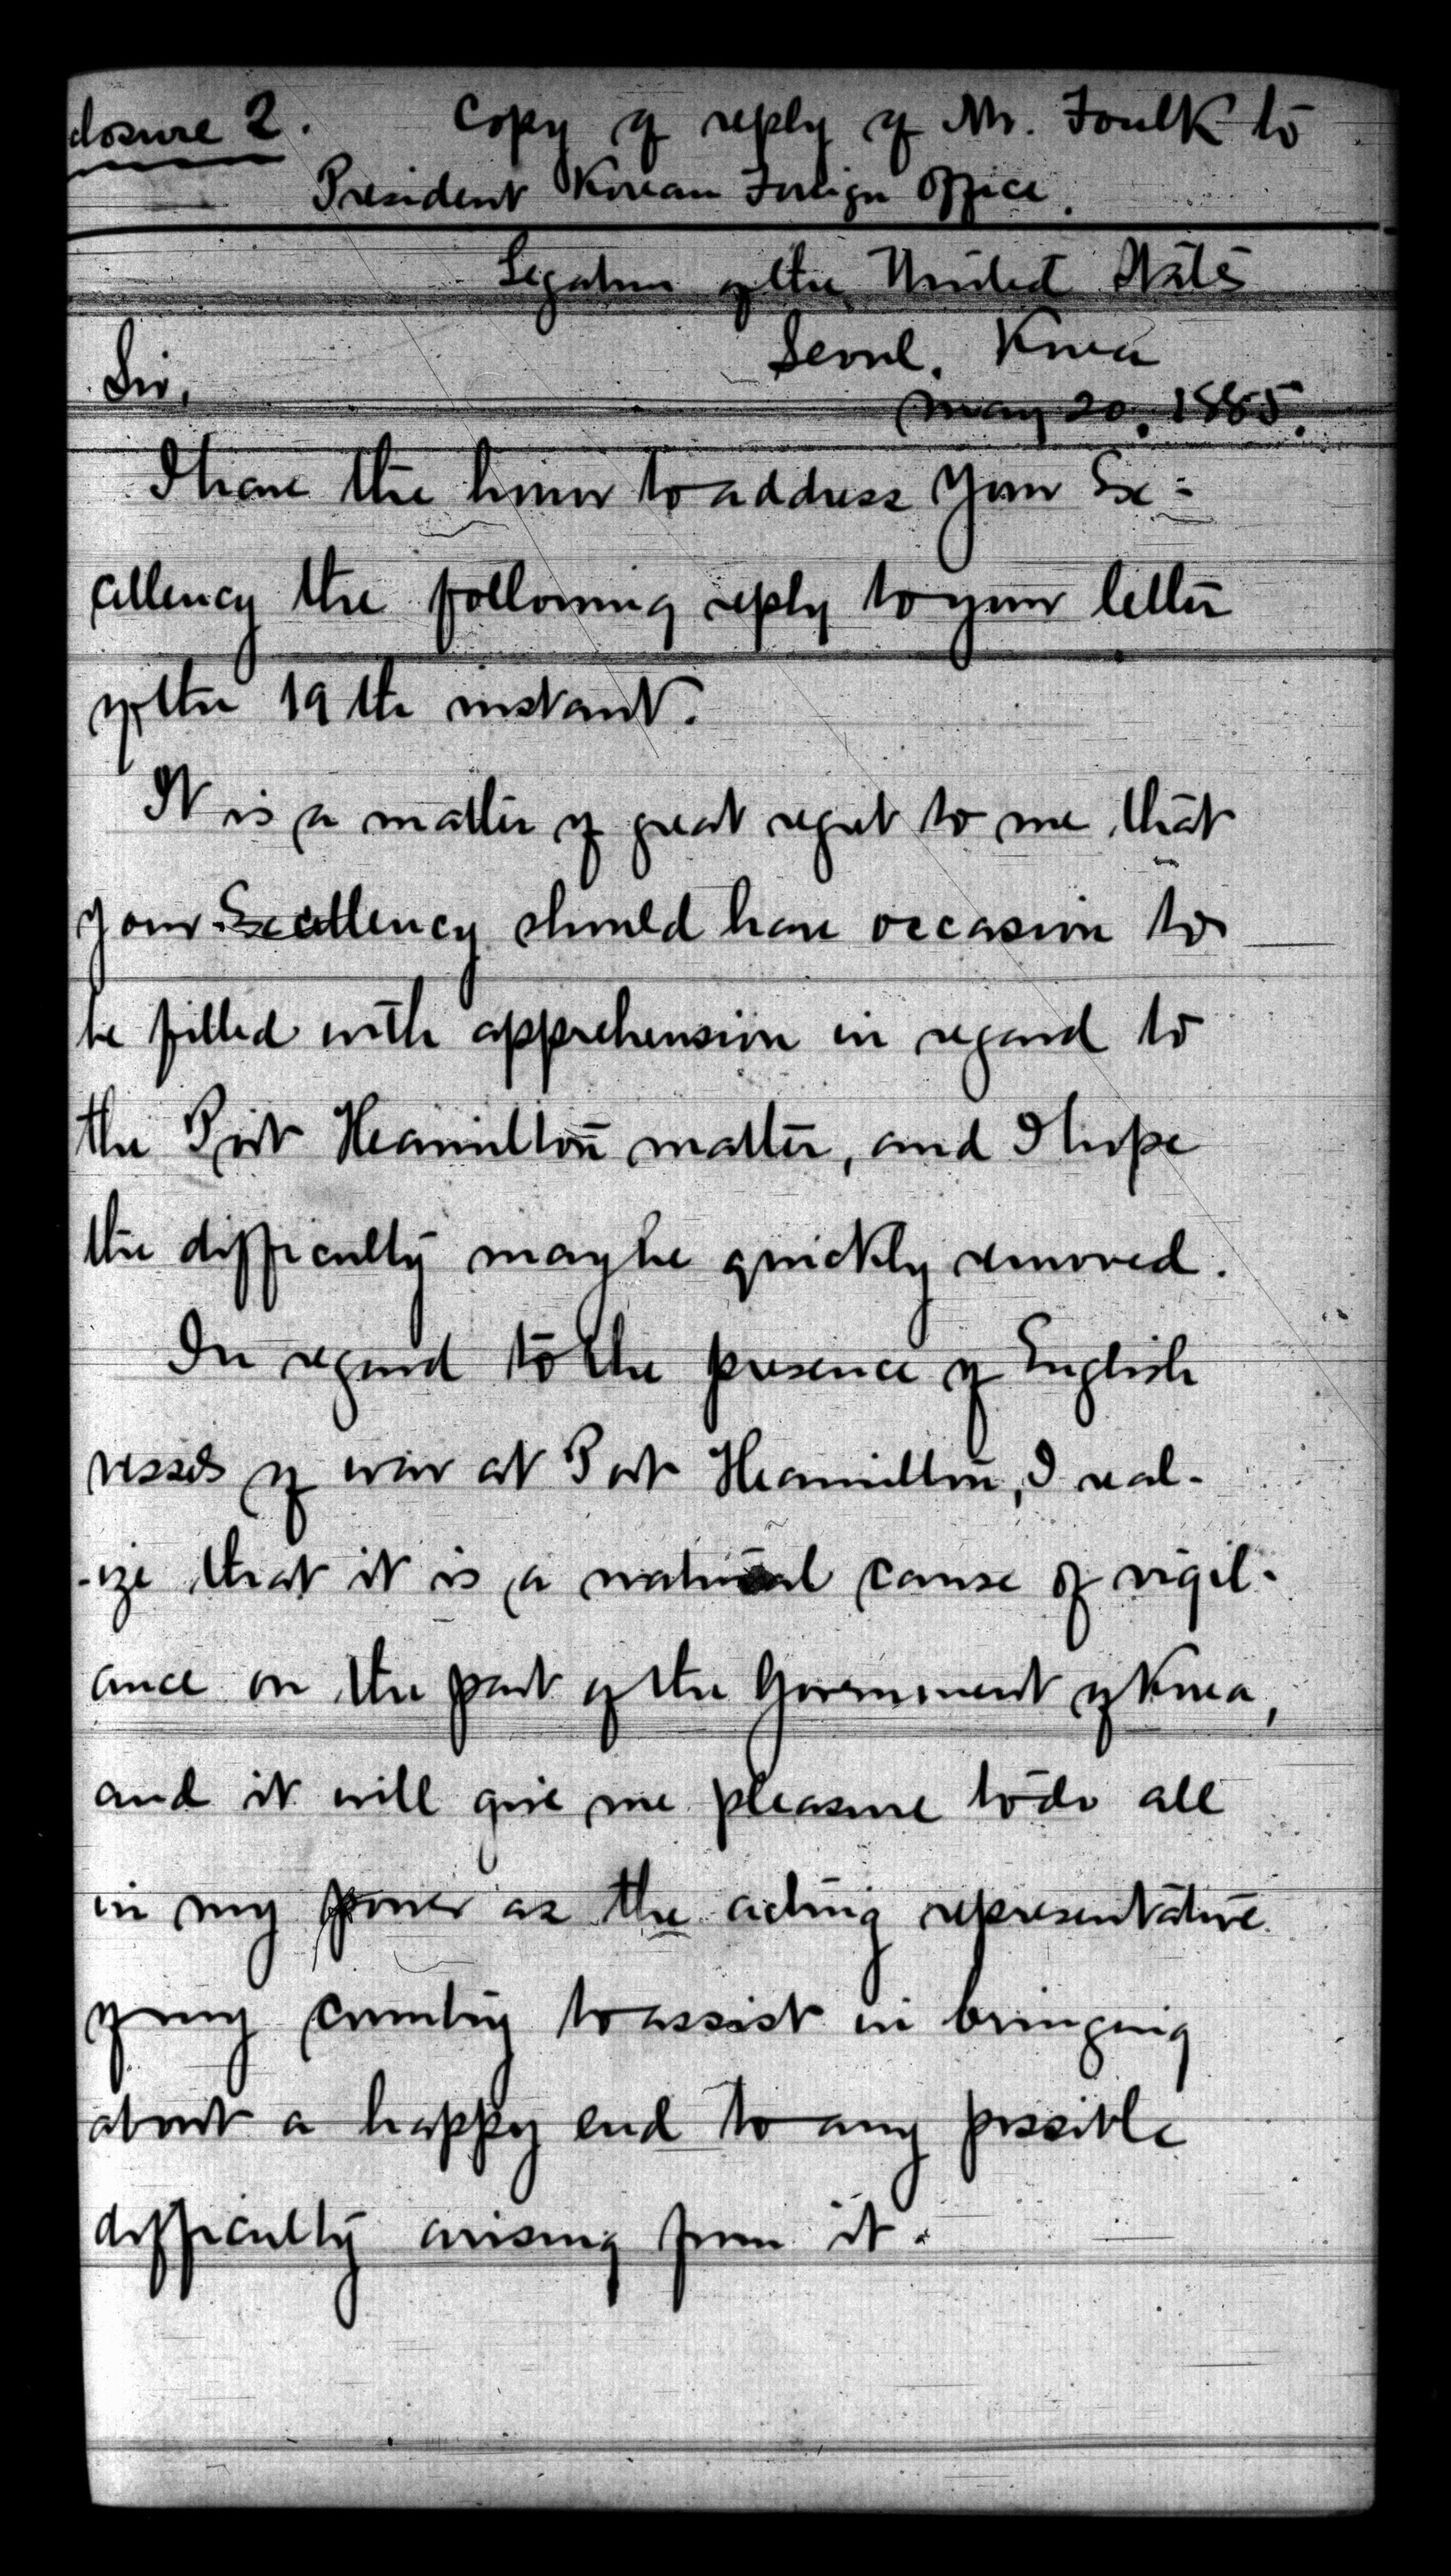 closure 2. Copy of reply of Mr. Foulk to
President Korean Foreign Office.
Legation of the United States
Seoul, Korea
Sir,
May 20, 1885.
I have the honor to address Your Ex-
cellency the following reply to your letter
of the 19th instant.
It is a matter of great regret to me that
your Excellency should have occasion to
be filled with apprehension in regard to
the Port Hamilton matter, and I hope
the difficulty may be quickly removed.
In regard to the presence of English
vessels of war at Port Hamilton, I real-
-ize that it is a natural cause of vigil-
ance on the part of the Government of Korea,
and it will give me pleasure to do all
in my power as the acting representative
of my country to assist in bringing
about a happy end to any possible
difficulty arising from it.